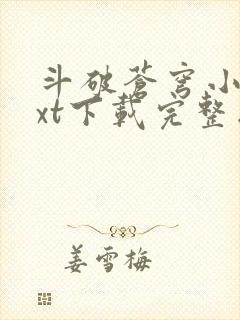 斗破苍穹小
xt下载完整
姜雪梅